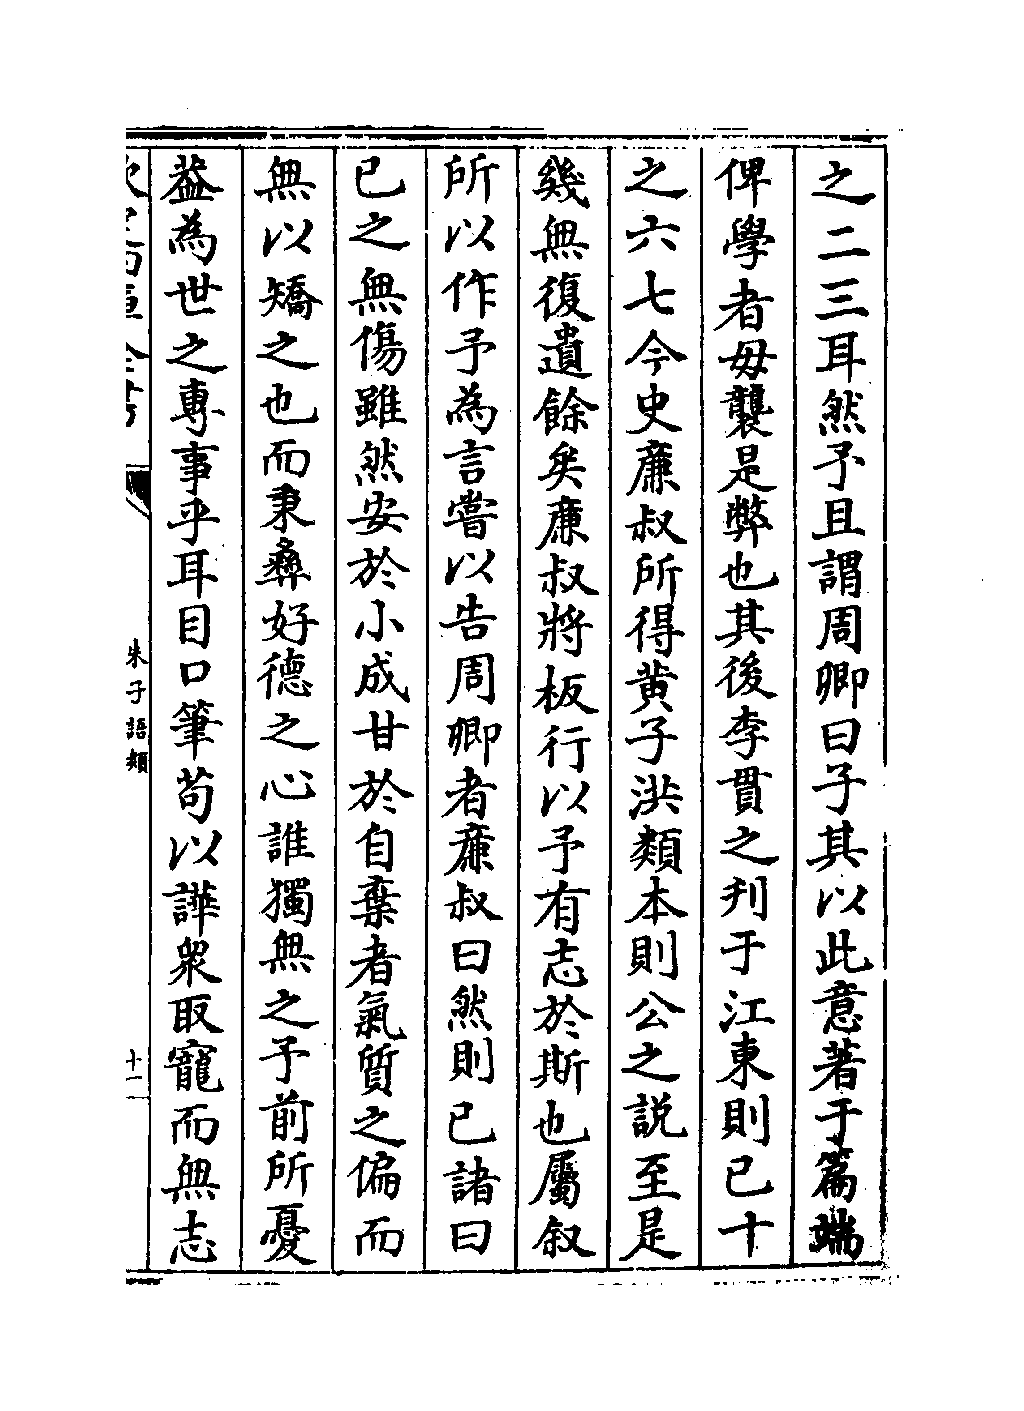 之二三耳然予且謂周卿曰子其以此意著于篇端
俾學者毋襲是弊也其後李貫之刋于江東則已十
之六七今史㢘叔所得黄子洪類本則公之説至是
幾無復遺餘矣㢘叔將板行以予有志於斯也屬叙
所以作予為言嘗以告周卿者㢘叔曰然則已諸曰
已之無傷雖然安於小成甘於自棄者氣質之偏而
無以矯之也而秉彞好德之心誰獨無之予前所憂
益為世之專事乎耳目口筆苟以譁衆取寵而無志
朱子語類
十一